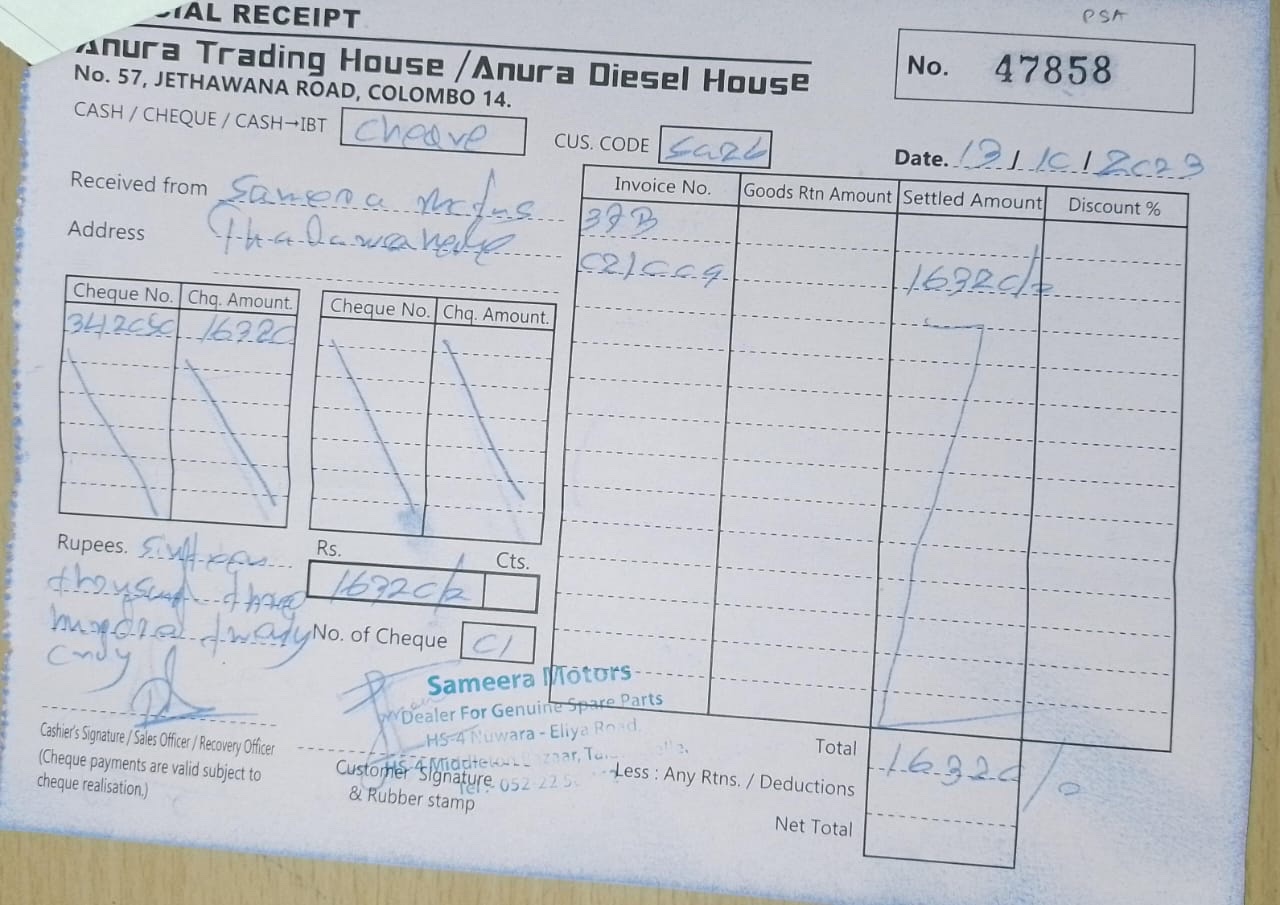 IAL RECEIPT
PSA
Anura Trading House / Anura Diesel House
No. 47858
No. 57, JETHAWANA ROAD, COLOMBO 14.
CASH / CHEQUE / CASH→IBT Cheque
CUS. CODE Sa26
Date. 13 / 10 / 2023
Received from Sameera
Address
Invoice No. Goods Rtn Amount Settled Amount Discount %
37B
C21009 16320/=
Cheque No. Chq. Amount. Cheque No. Chq. Amount.
342050 16320
Rupees. Sixteen
thousand three
hundred twenty
only
Rs. Cts.
16320/=
No. of Cheque 01
Sameera Motors
Dealer For Genuine Spare Parts
HS-4 Nuwara - Eliya Road,
Cashier's Signature / Sales Officer / Recovery Officer
(Cheque payments are valid subject to
cheque realisation.)
Customer Signature
& Rubber stamp
Tel: 052 22
Total 16320/=
Less : Any Rtns. / Deductions
Net Total